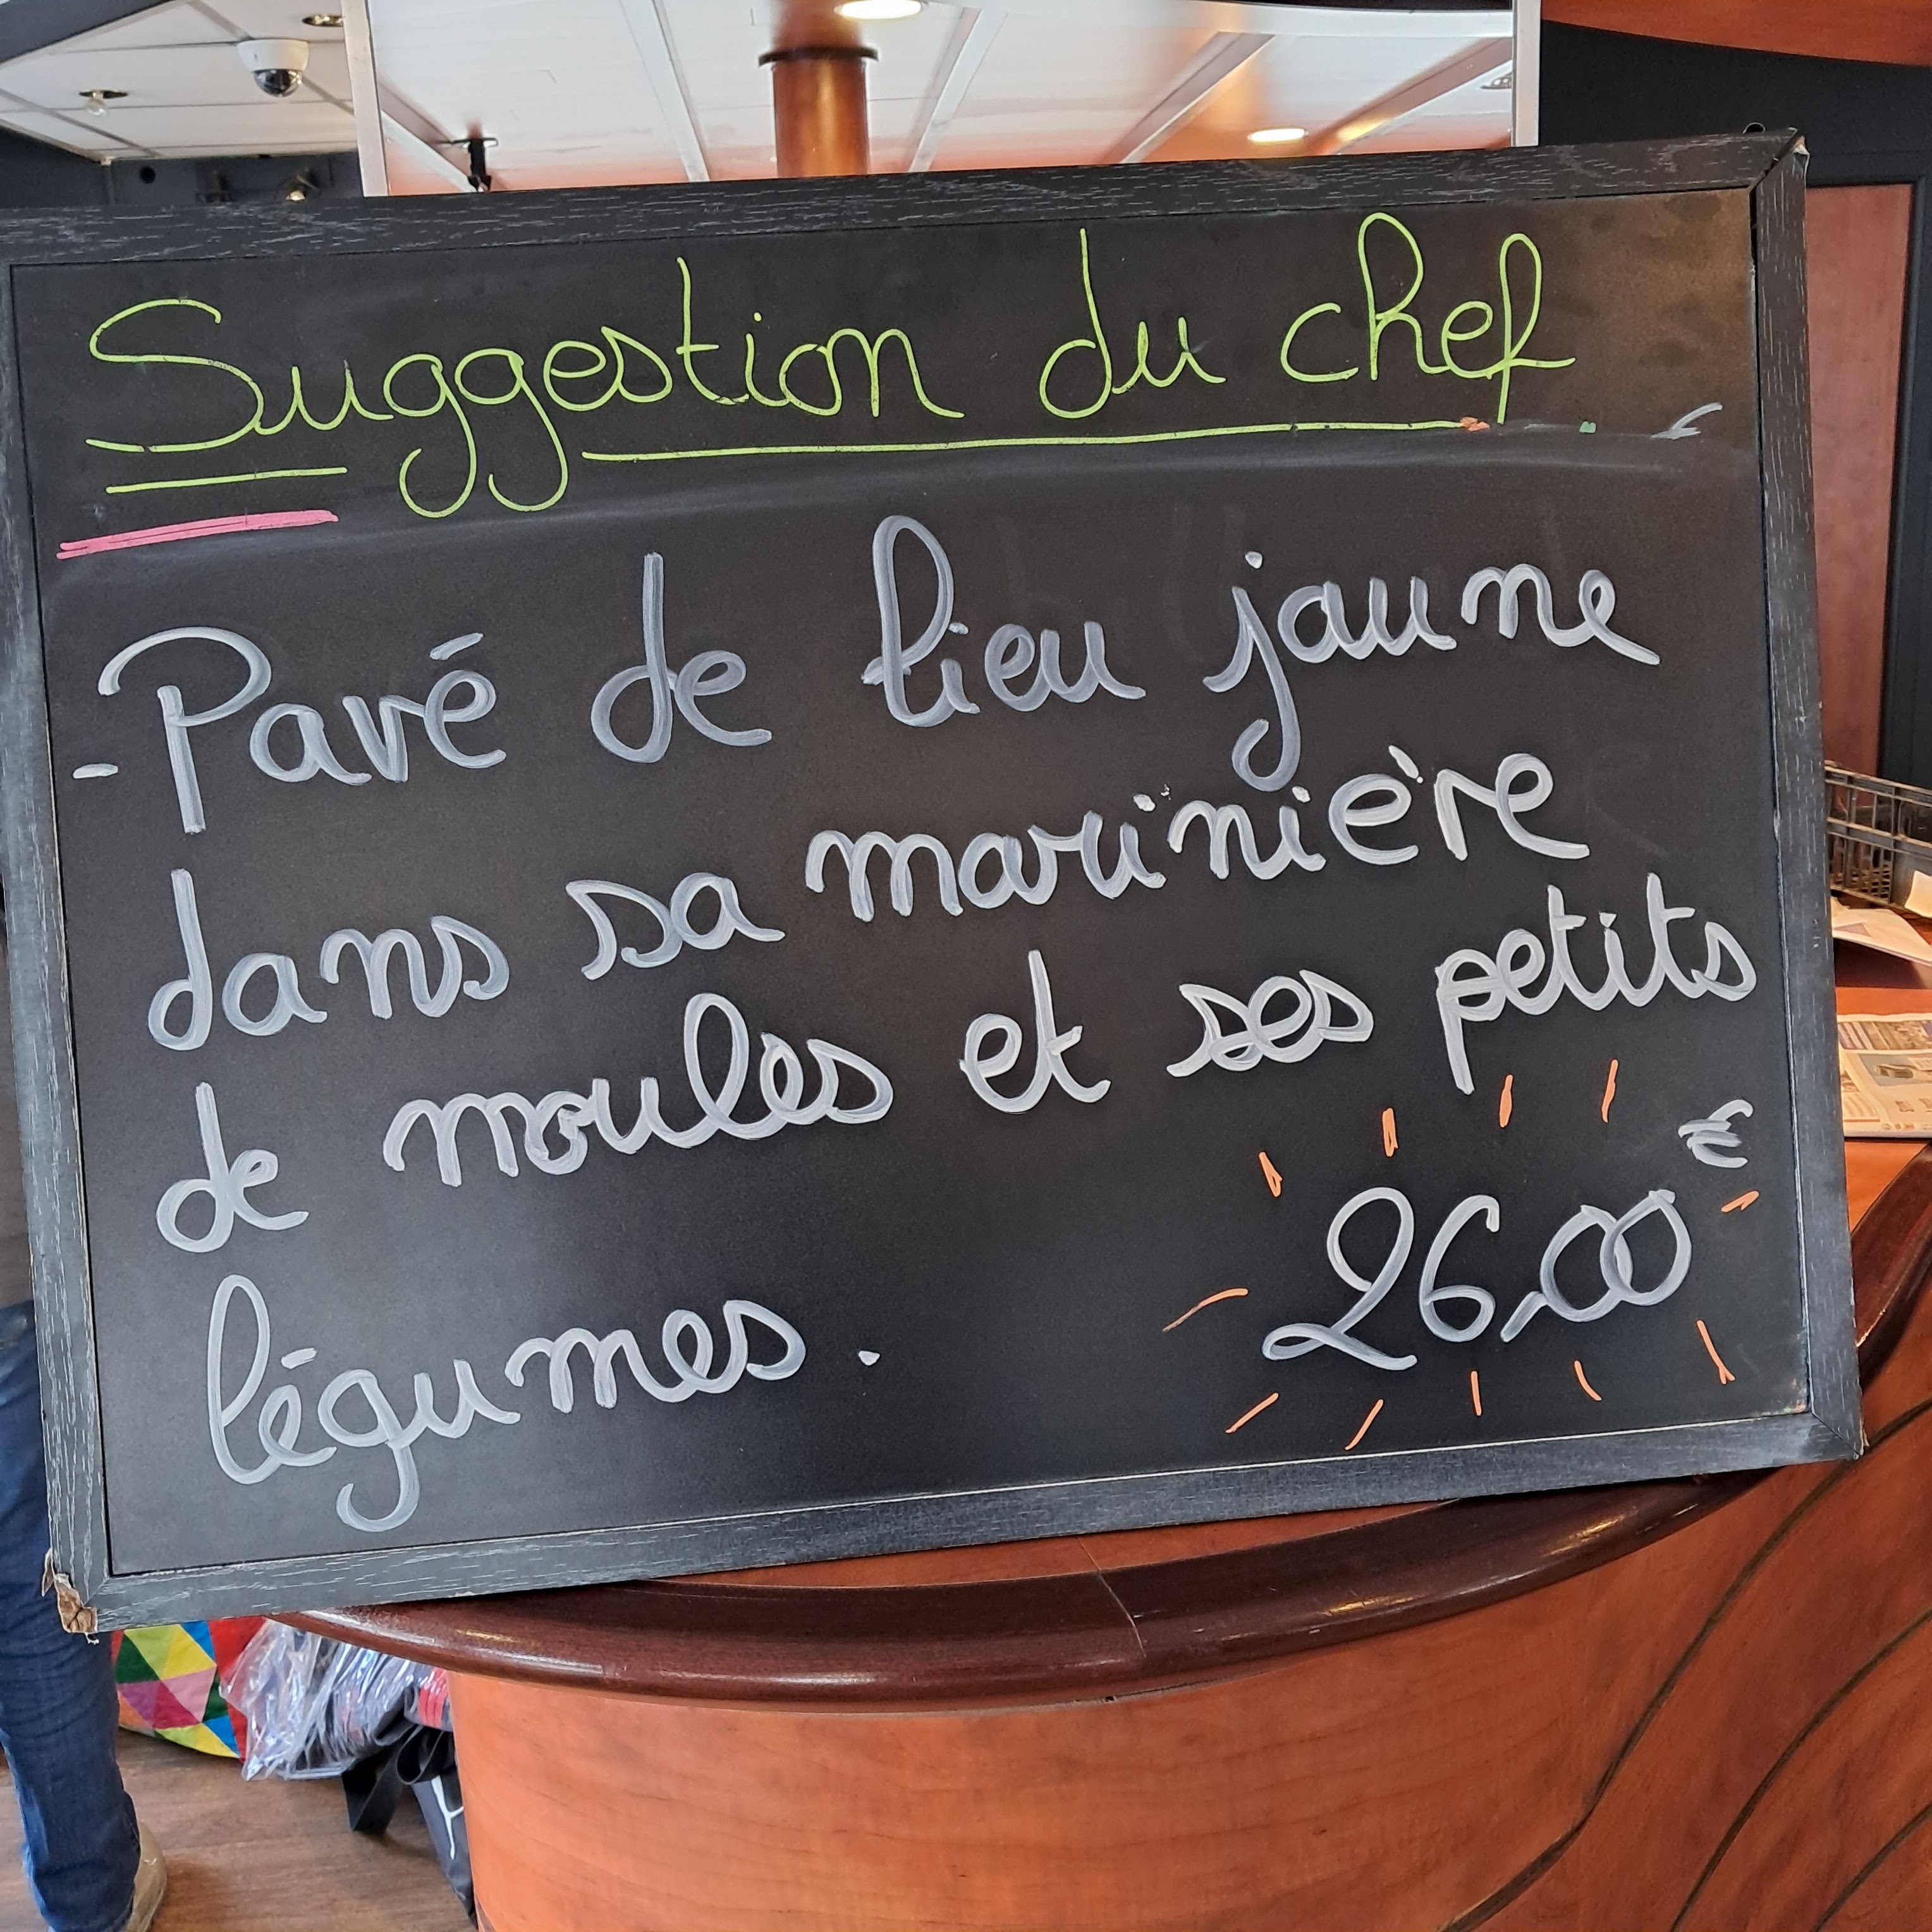 Suggestion du chef
- Pavé de lieu jaune
dans sa marinière
de moules et ses petits
légumes.
26,00 €